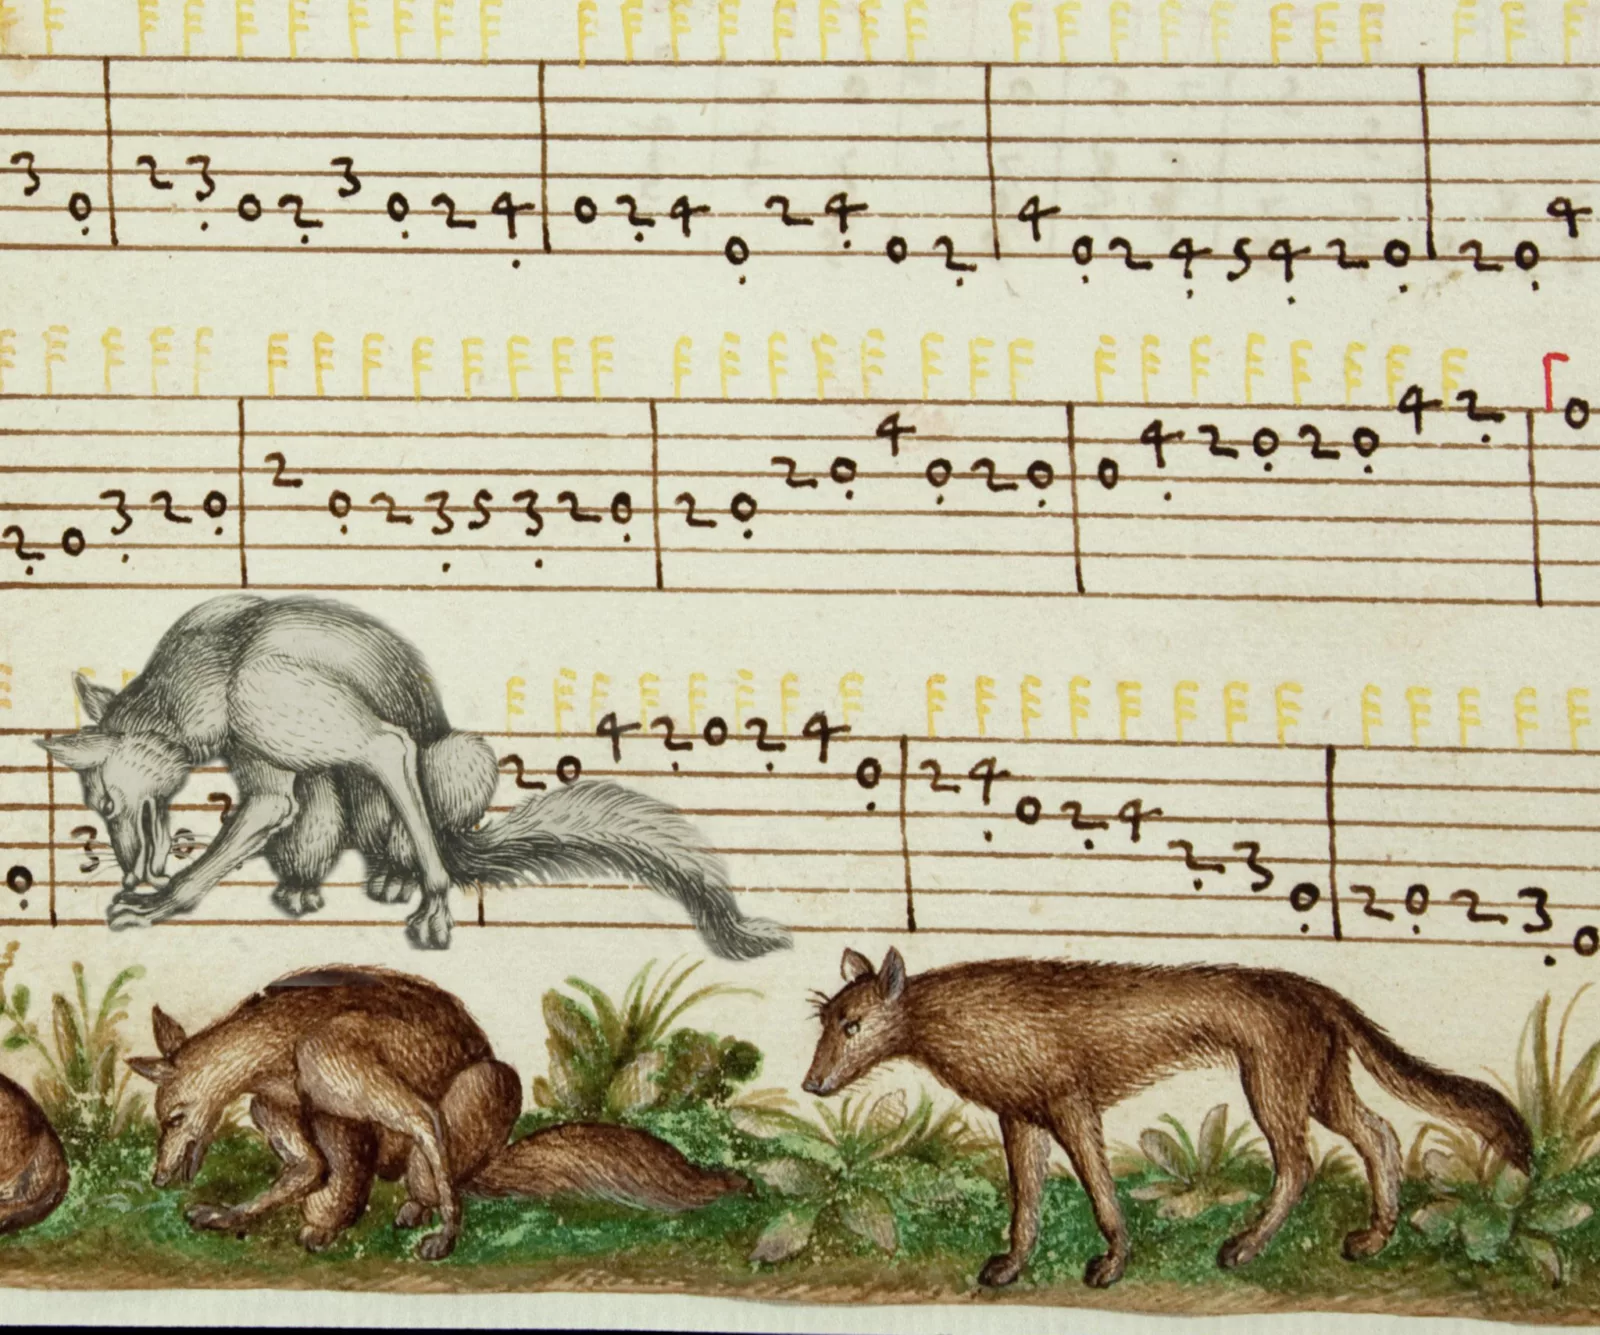 3 0 2 3 0 2 3 0 2 4 0 2 4 0 2 4 0 2 4 0 2 4 5 4 2 0 2 0 4
2 0 3 2 0 2 0 2 3 5 3 2 0 2 0 2 0 4 0 2 0 0 4 2 0 2 0 4 2 0
0 3 2 0 4 2 0 2 4 0 2 4 0 2 4 2 3 0 2 0 2 3 0